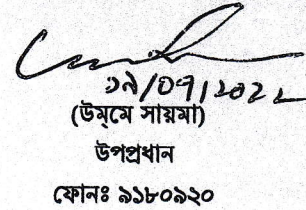 ১৯/০৭/২০২২
(উম্মে সায়মা)
উপপ্রধান
ফোনঃ ৯১৮০৯২০